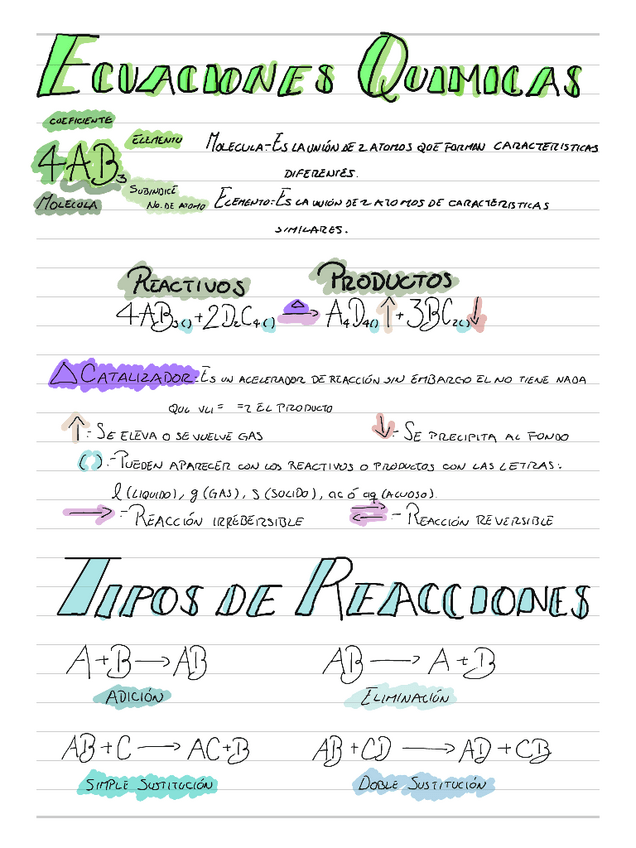 ECUACIONES QUIMICAS
COEFICIENTE
ELEMENTO
4AB3
MOLECULA-ES LA UNIÓN DE 2 ATOMOS QUE FORMAN CARACTERISTICAS
DIFERENTES.
SUBINDICE
NO. DE ATOMO
MOLECULA
ELEMENTO:-ES LA UNIÓN DE 2 ATOMOS DE CARACTERISTICAS
SIMILARES.
REACTIVOS PRODUCTOS
4AB3() + 2D2C4() △→ A4D4()↑ + 3BC2()↓
△CATALIZADOR-ES UN ACELERADOR DE REACCIÓN SIN EMBARGO EL NO TIENE NADA
QUE EL PRODUCTO
↑:-SE ELEVA O SE VUELVE GAS
↓:-SE PRECIPITA AL FONDO
():-PUEDEN APARECER CON LOS REACTIVOS O PRODUCTOS CON LAS LETRAS:
l (LIQUIDO), g (GAS), S (SOLIDO), ac ó aq (ACUOSO).
→:-REACCIÓN IRREBERSIBLE
⇄-REACCIÓN REVERSIBLE
TIPOS DE REACCIONES
A+B→AB
AB→A+B
ADICIÓN
ELIMINACIÓN
AB+C→AC+B
AB+CD→AD+CB
SIMPLE SUSTITUCIÓN
DOBLE SUSTITUCIÓN